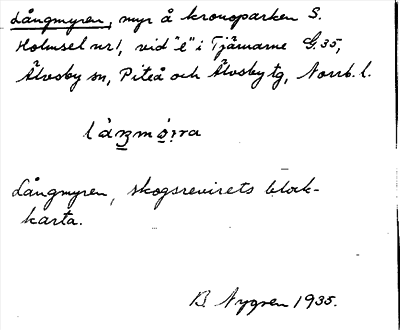 Långmyren, myr å kronoparken S.
Holmsel nr 1, vid "e" i Tjärnarne G.35,
Älvsby sn, Piteå och Älvsby tg, Norrb. l.
Långmyren, skogsrevirets block-
karta.
B. Nygren 1935.